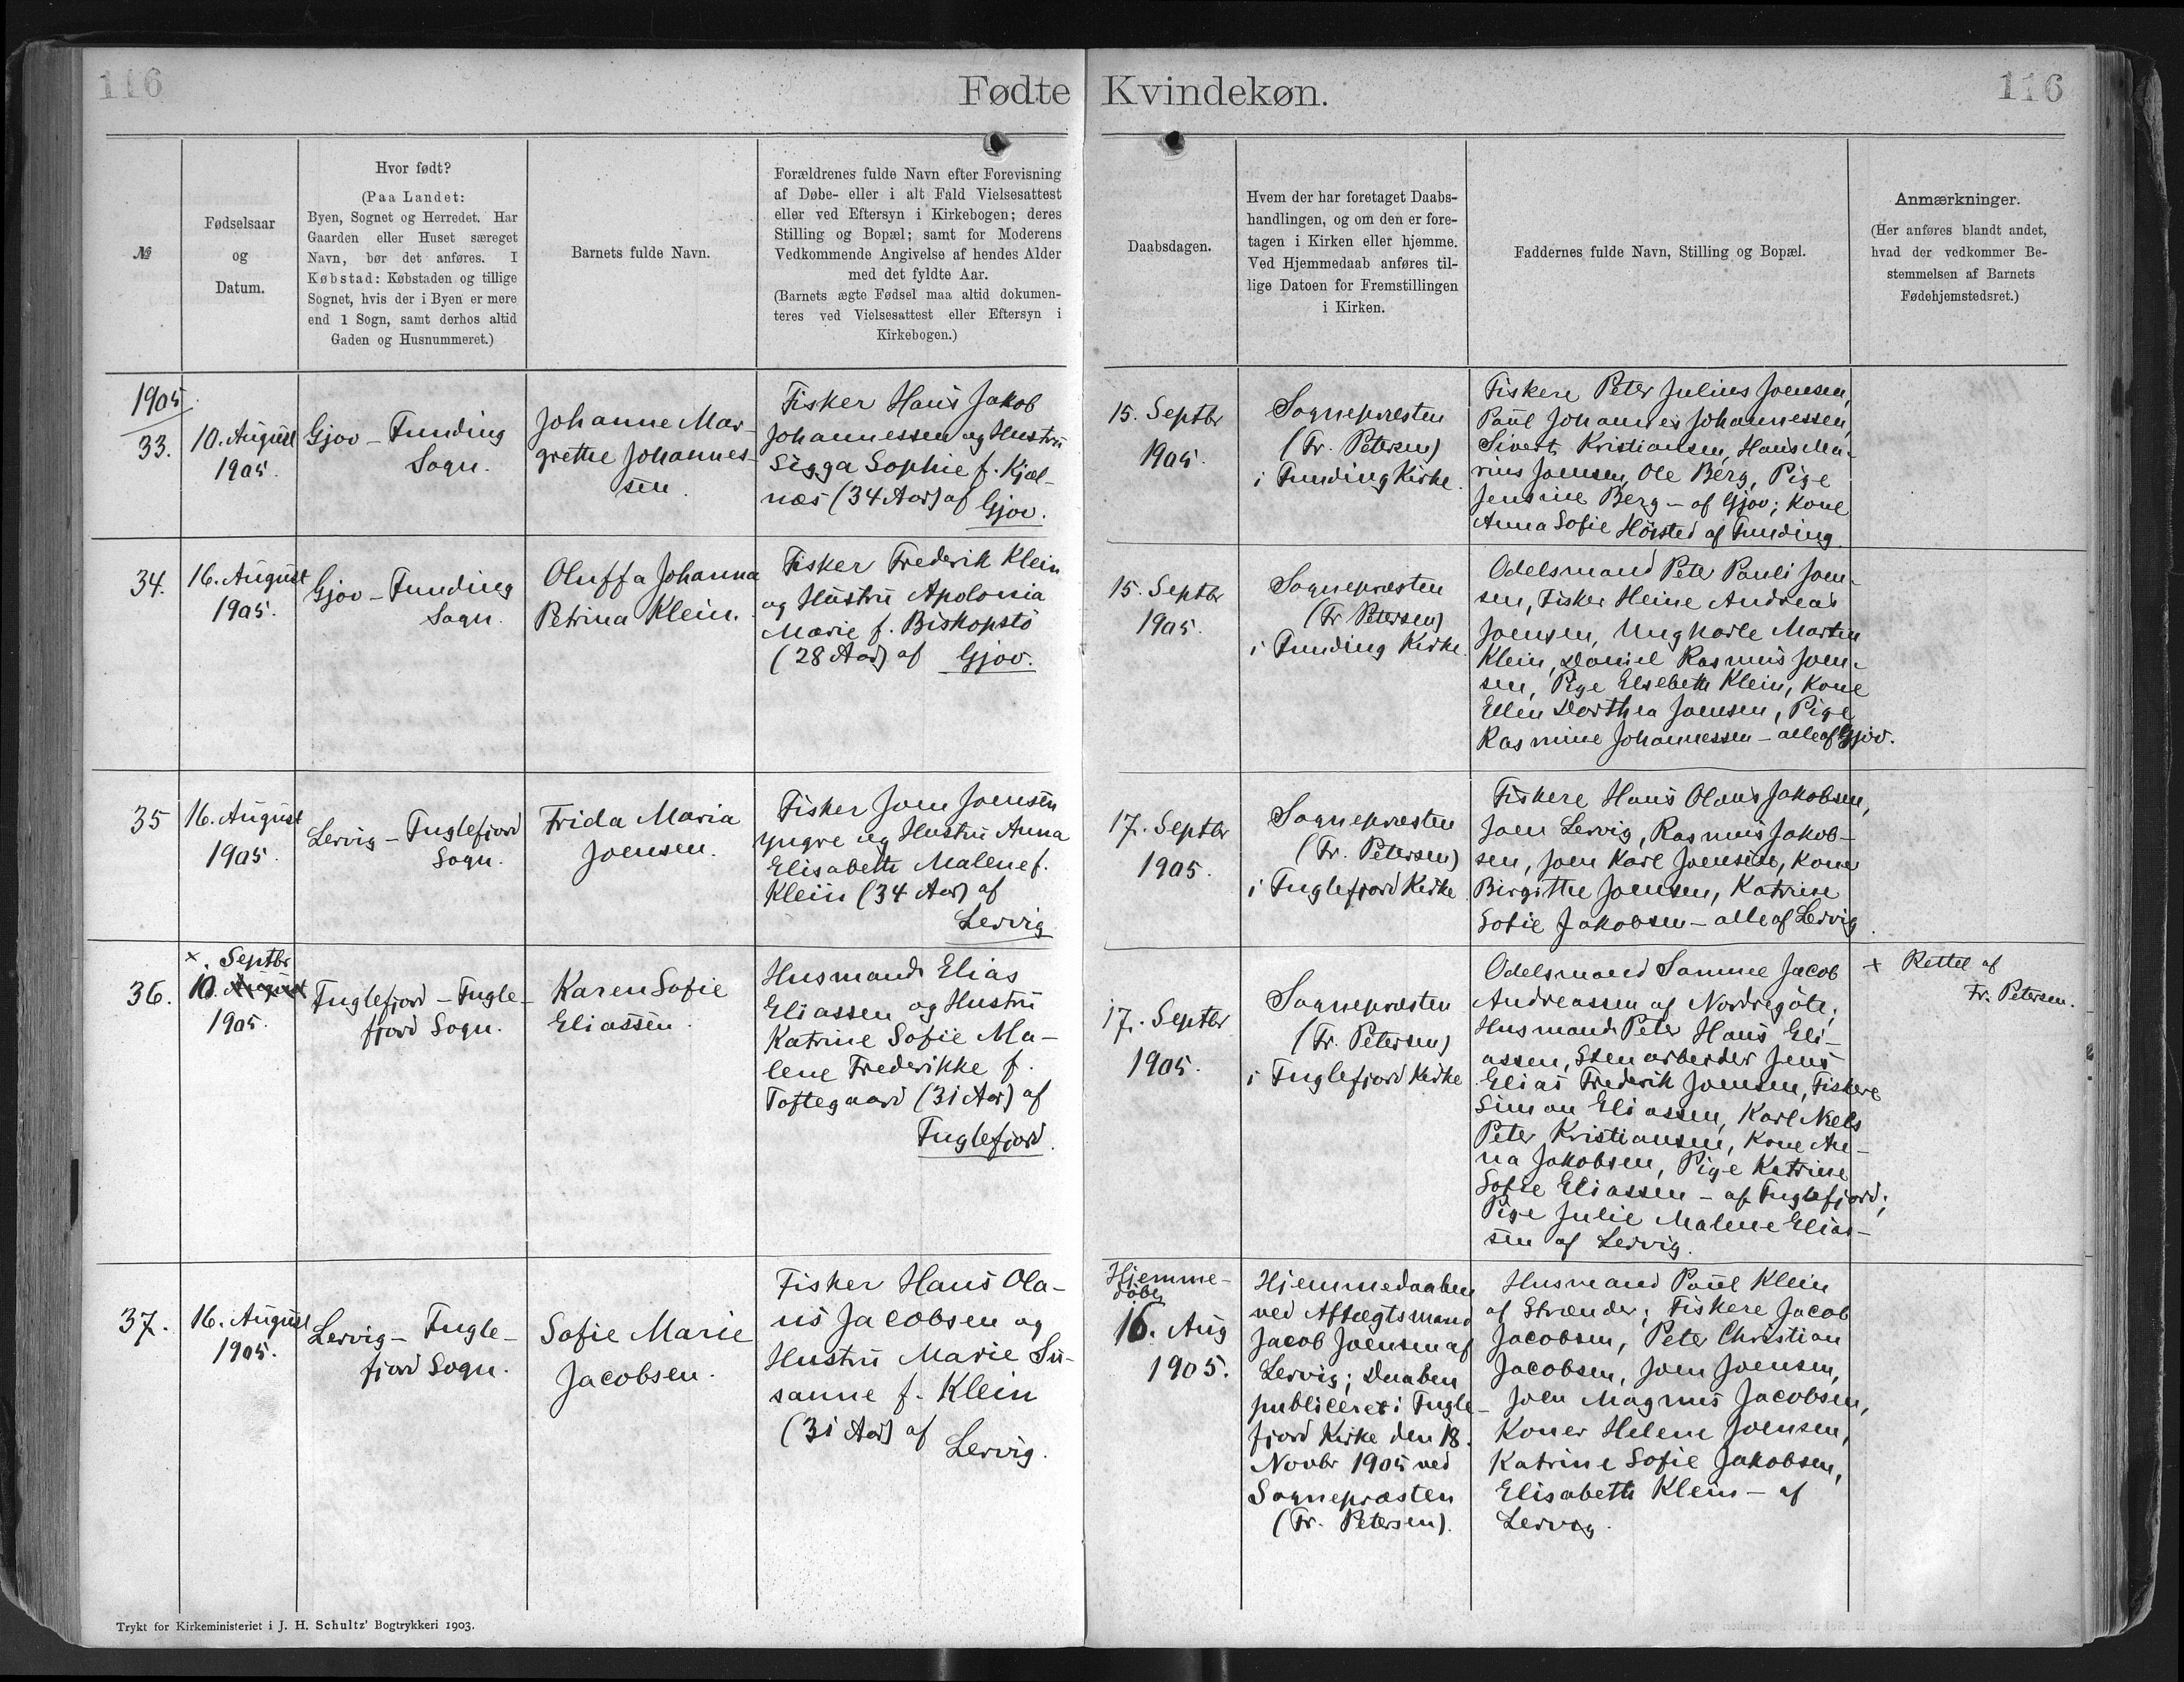 116
Fødte Kvindekøn.
116
№
Fødselsaar
og
Datum.
Hvor født?
(Paa Landet:
Byen, Sognet og Herredet. Har
Gaarden eller Huset særeget
Navn, bør det anføres. I
Købstad: Købstaden og tillige
Sognet, hvis der i Byen er mere
end 1 Sogn, samt derhos altid
Gaden og Husnummeret.)
Barnets fulde Navn.
Forældrenes fulde Navn efter Forevisning
af Døbe- eller i alt Fald Vielsesattest
eller ved Eftersyn i Kirkebogen; deres
Stilling og Bopæl; samt for Moderens
Vedkommende Angivelse af hendes Alder
med det fyldte Aar.
(Barnets ægte Fødsel maa altid dokumen-
teres ved Vielsesattest eller Eftersyn i
Kirkebogen.)
Daabsdagen.
Hvem der har foretaget Daabs-
handlingen, og om den er fore-
tagen i Kirken eller hjemme.
Ved Hjemmedaab anføres til-
lige Datoen for Fremstillingen
i Kirken.
Faddernes fulde Navn, Stilling og Bopæl.
Anmærkninger.
(Her anføres blandt andet,
hvad der vedkommer Be-
stemmelsen af Barnets
Fødehjemstedsret.)
1905
33.
10. August
1905.
Gjov - Funding
Sogn.
Johanne Mar-
grethe Johannes-
sen.
Fisker Hans Jakob
Johannessen og Hustru
Sigga Sophie f. Kjæl-
næs (34 Aar) af
Gjov.
15. Septbr
1905.
Sognepræsten
(Fr. Petersen)
i Funding Kirke.
Fiskere Peter Julius Joensen,
Paul Johannes Johannessen,
Sivert Kristiansen, Hans Ma-
rius Joensen, Ole Berg, Pige
Jensine Berg - af Gjov; Kone
Anna Sofie Hørsted af Funding.
34.
16. August
1905.
Gjov - Funding
Sogn.
Oluffa Johanna
Petrina Klein.
Fisker Frederik Klein
og Hustru Apolonia
Marie f. Biskopstø
(28 Aar) af Gjov.
15. Septbr
1905.
Sognepræsten
(Fr Petersen)
i Funding Kirke.
Odelsmand Peter Pauli Joen-
sen, Fisker Heine Andreas
Joensen, Ungkarle Martin
Klein, Daniel Rasmus Joen-
sen, Pige Elsebeth Klein, Kone
Ellen Dorthea Joensen, Pige
Rasmine Johannessen - alle af Gjov.
35
16. August
1905.
Lervig - Fuglefjord
Sogn.
Frida Maria
Joensen.
Fisker Joen Joensen
yngre og Hustru Anna
Elisabeth Malene f.
Klein (34 Aar) af
Lervig
17. Septbr
1905.
Sognepræsten
(Fr. Petersen)
i Fuglefjord Kirke.
Fiskere Hans Olaus Jakobsen,
Joen Lervig, Rasmus Jakob-
sen, Joen Karl Joensen, Koner
Birgitthe Joensen, Katrine
Sofie Jakobsen - alle af Lervig.
36.
×. Septbr
10. August
1905.
Fuglefjord - Fugle-
fjord Sogn.
Karen Sofie
Eliassen.
Husmand Elias
Eliassen og Hustru
Katrine Sofie Ma-
lene Frederikke f.
Toftegaard (31 Aar) af
Fuglefjord.
17. Septbr
1905.
Sognepræsten
(Fr. Petersen)
i Fuglefjord Kirke
Odelsmand Samme Jacob
Andreassen af Nordregøte;
Husmand Peter Hans Eli-
assen, Stenarbeider Jens
Elias Frederik Joensen, Fiskere
Simon Eliassen, Karl Niels
Peter Kristiansen, Kone An-
na Jakobsen, Pige Katrine
Sofie Eliassen - af Fuglefjord;
Pige Julie Malene Elias-
sen af Lervig.
× Rettet af
Fr. Petersen.
37.
16. August
1905.
Lervig - Fugle-
fjord Sogn.
Sofie Marie
Jacobsen.
Fisker Hans Ola-
us Jacobsen og
Hustru Marie Su-
sanne f. Klein
(31 Aar) af
Lervig.
Hjemme-
døbt
16. Aug
1905.
Hjemmedaaben
ved Aftægtsmand
Jacob Joensen af
Lervig; Daaben
publiceret i Fugle-
fjord Kirke den 18.
Novbr 1905 ved
Sognepræsten
(Fr. Petersen).
Husmand Paul Klein
af Strænder; Fiskere Jacob
Jacobsen, Peter Christian
Jacobsen, Joen Joensen,
Joen Magnus Jacobsen,
Koner Helene Joensen,
Katrine Sofie Jakobsen,
Elisabeth Klein - af
Lervig.
Trykt for Kirkeministeriet i J. H. Schultz' Bogtrykkeri 1903.